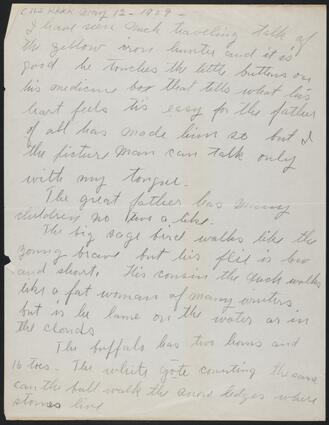 May 12 - 1909 -
I have seen much traveling talk of
the yellow iron hunter and it is
good he touches the little buttons on
his medicine box that tells what his
heart feels tis easy for the father
of all has made him so but I
the picture man can talk only
with my tongue.
The great father has many
children no two a like.
The big sage bird walks like the
young brave but his flie is low
and short. His cousin the duck walks
like a fat woman of many winters
but is he lame on the water or in
the clouds
The buffalo has two horns and
16 toes. The white gote counting the same
can the bull walk the snow ledges where
stones live